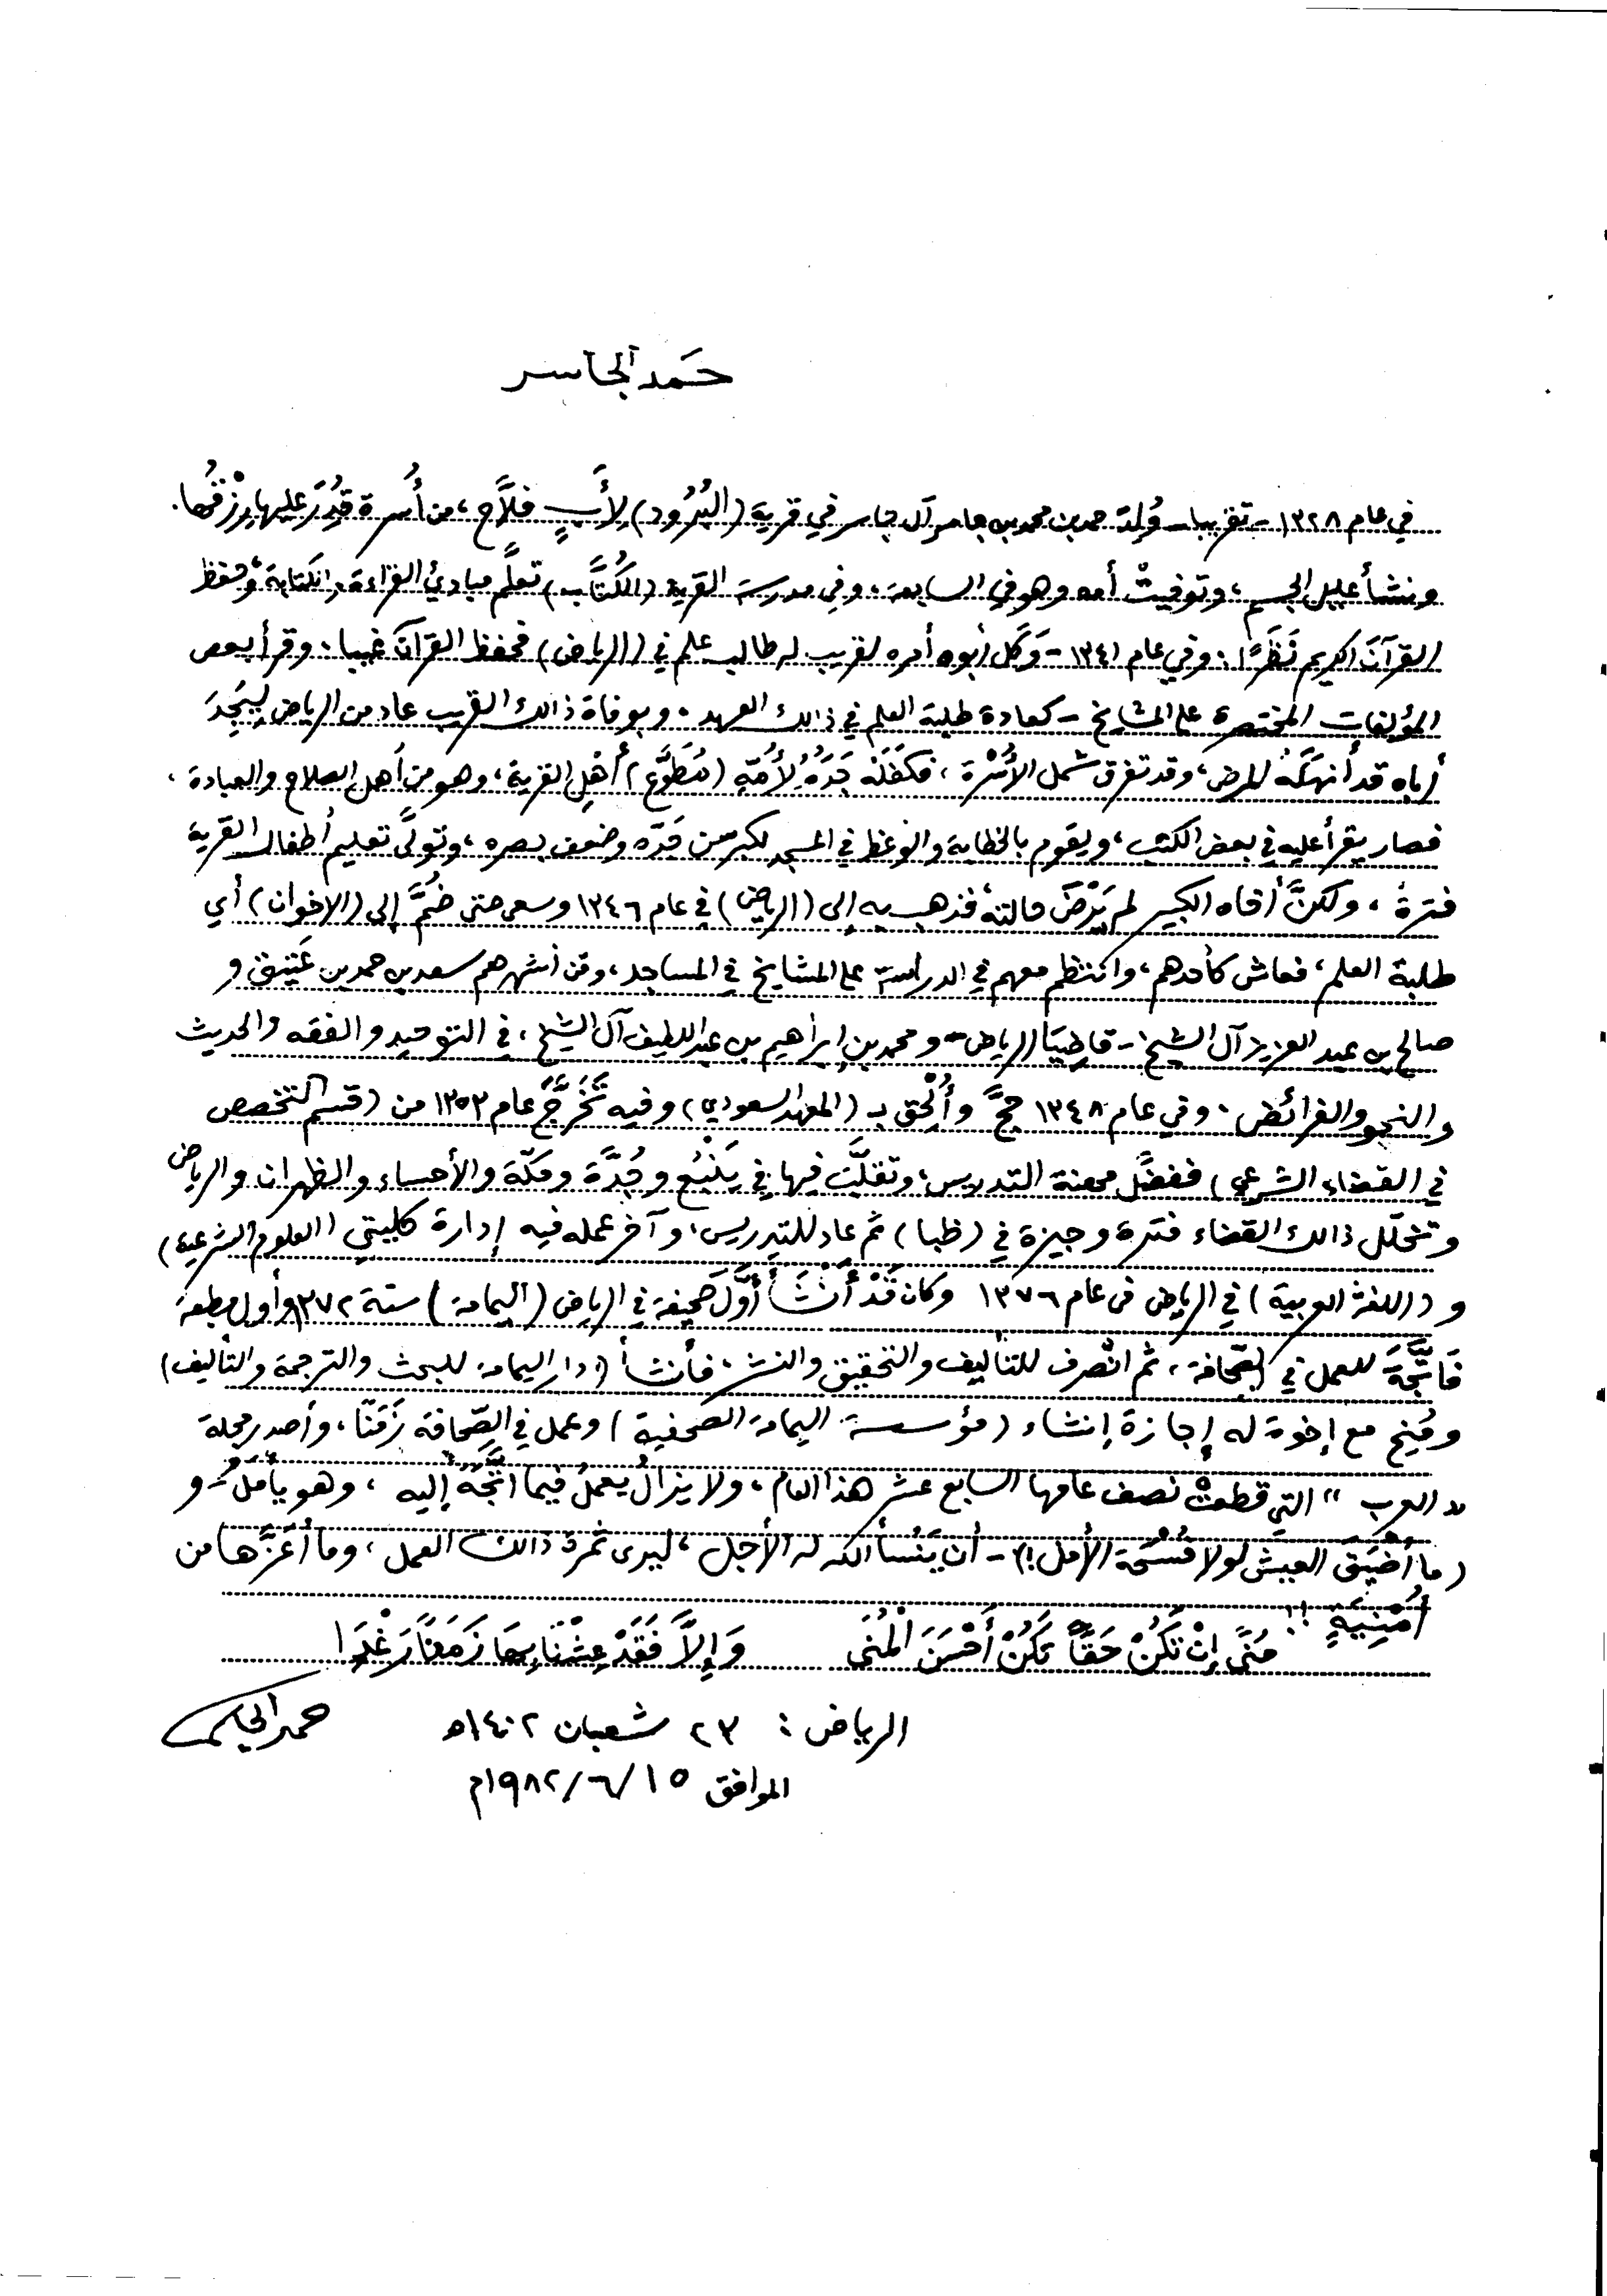 حَمَد الجاسر
في عام ١٣٢٨ - تقريبا - وُلِدَ حمد بن محمد بن جاسر آل جاسر في قرية (البُرُود) لِأَبٍ فلَّاح، من أُسرة قُدِرَ عليها رِزْقُها.
ونشأ عليل الجسم، وتوفيتْ أمه وهو في السابعة، وفي مدرسة القرية (الكُتَّاب) تعلَّم مبادئ القراءة والكتابة، وحفظ
القرآنَ الكريم نَظَرًا. وفي عام ١٣٤١ - وَكَلَ أبوه أمره لقريب له طالب علم في (الرياض) فحفظ القرآنَ غيبا. وقرأ بعض
المؤلفات المختصرة على المشايخ - كعادة طلبة العلم في ذالك العهد. وبوفاة ذالك القريب عاد من الرياض لِيَجِدَ
أباه قد أنهكَهُ المرض، وقد تفرق شمل الأُسْرة، فكفَلَهُ جَدُّهُ لِأُمِّهِ (مُطَوَّع) أهْلِ القرية، وهو من أهل الصلاح والعبادة،
فصار يقرأ عليه في بعض الكتب، ويقوم بالخطابة والوعظ في المسجد لكبر سن جَدّه وضعف بصره، وتولَّى تعليم أطفال القرية
فترةً، ولكنَّ أخاه الكبير لم يَرْضَ حالته فذهب به إلى (الرياض) في عام ١٣٤٦ وسعى حتى ضُمَّ إلى (الاخوان) أي
طلبة العلم، فعاش كأحدهم، وانتظم معهم في الدراسة على المشايخ في المساجد، ومن أشهرهم سعد بن حمد بن عَتِيق و
صالح بن عبد العزيز آل الشيخ - قاضِيَا الرياض - ومحمد بن إبراهيم بن عبد اللطيف آل الشيخ، في التوحيد والفقه والحديث
والنحو والفرائض. وفي عام ١٣٤٨ حجَّ وأُلْحِقَ بـ (المعهد السعودي) وفيه تَخَرَّجَ عام ١٣٥٣ من (قسم التخصص
في القضاء الشرعي) ففضَّل مهنة التدريس، وتقلَّبَ فيها في يَنْبُع وجُدَّة ومكّة والأحساء والظهران والرياض
وتخلّل ذالك القضاء فترة وجيزة في (ظبا) ثم عاد للتدريس، وآخر عمله فيه إدارة كليتي (العلوم الشرعية)
و (اللغة العربية) في الرياض في عام ١٣٧٦ وكان قَدْ أَنْشَأَ أوَّلَ صحيفة في الرياض (اليمامة) سنة ١٣٧٢ وأول مطبعة
فَاتَّجَهَ للعمل في الصِّحافة، ثم انْصرف للتأليف والتحقيق والنشر، فأنشأ (دار اليمامة للبحث والترجمة والتأليف)
ومُنِحَ مع إخوة له إجازة إنشاء (مؤسسة اليمامة الصحفية) وعمل في الصِّحافة زَمَنًا، وأصدر مجلة
« العرب » التي قطعتْ نصف عامها السابع عشر هذا العام، ولا يزالُ يعملُ فيما اتَّجَهَ إليه، وهو يأمل - و
(ما أَضْيَقَ العيشَ لولا فُسْحَة الأمل!) - أن يَنْسأ الله له الأجل، ليرى ثمرة ذالك العمل، وما أعَزَّها من
أمْنِيَةٍ !!
مُنًى إِنْ تَكُنْ حَقًّا تَكُنْ أَحْسَنَ الْمُنَى وَإِلَّا فَقَدْ عِشْنَا بِهَا زَمَنًا رَغْدَا
الرياض: ٢٣ شعبان ١٤٠٢هـ حمد الجاسر
الموافق ١٥/٦/١٩٨٢م